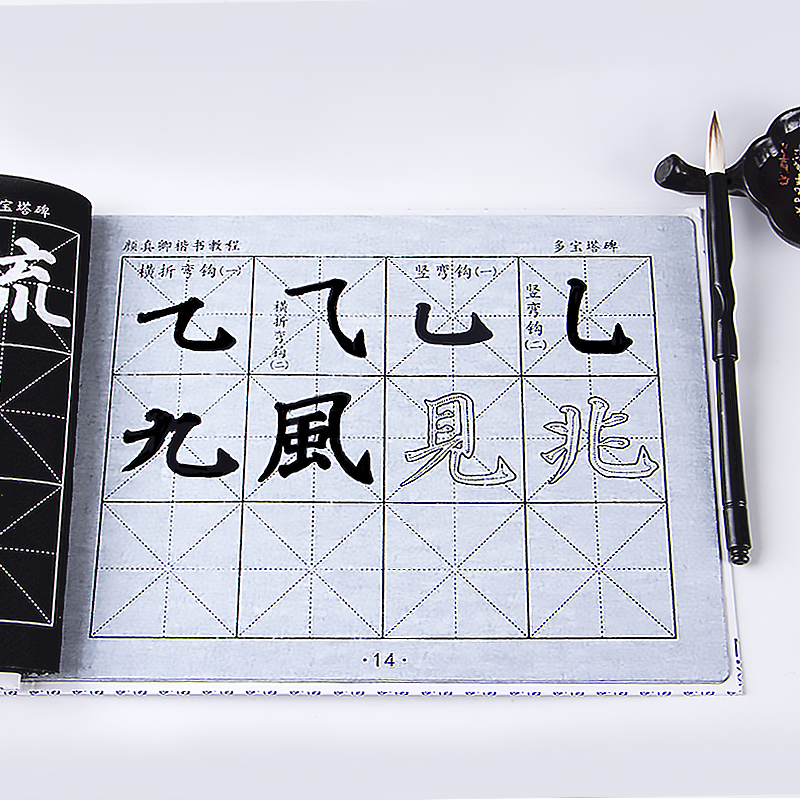 宝塔碑
流
颜真卿楷书教程
多宝塔碑
横折弯钩(一)
横折弯钩(二)
竖弯钩(一)
竖弯钩(二)
九風見兆
·14·